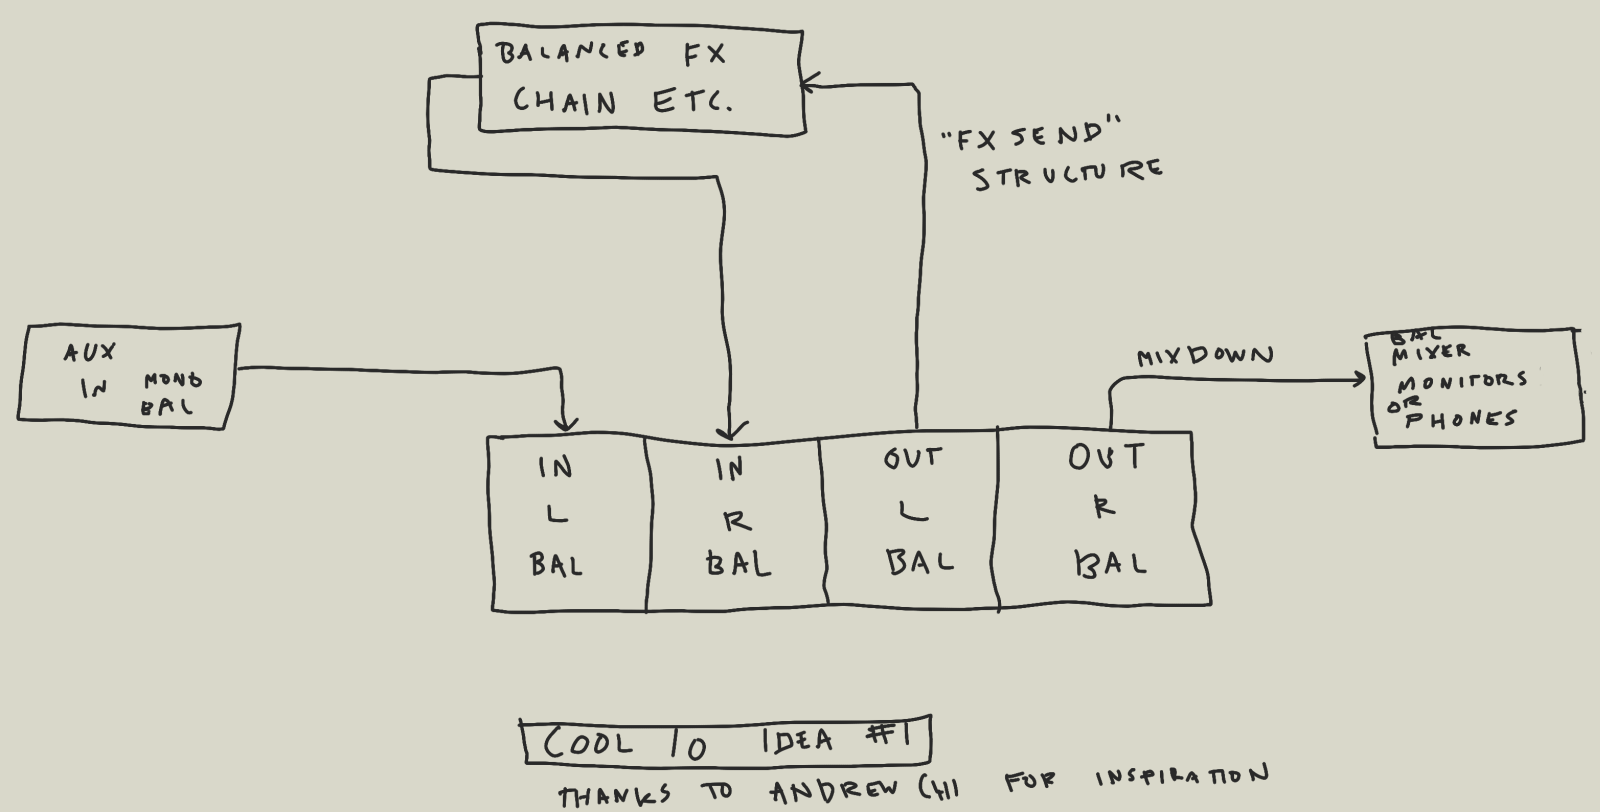 BALANCED FX
CHAIN ETC.
"FX SEND"
STRUCTURE
AUX
IN MONO
BAL
MIXDOWN
BAL
MIXER
MONITORS
OR
PHONES
IN
L
BAL
IN
R
BAL
OUT
L
BAL
OUT
R
BAL
COOL IO IDEA #1
THANKS TO ANDREW CHI FOR INSPIRATION